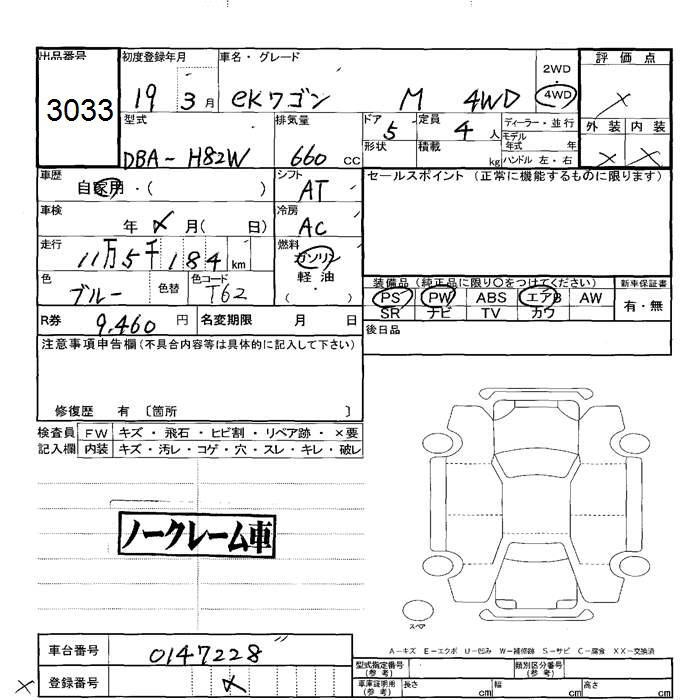 出品番号
3033
初度登録年月
19 3月
車名・グレード
eKワゴン M 4WD
2WD
・
4WD
評価点
×
外装 内装
× ×
型式
DBA-H82W
排気量
660 cc
ドア
5
定員
4人
形状
積載
kg
ディーラー・並行
モデル年式 年
ハンドル 左・右
車歴
自家用・( )
シフト
AT
車検
年 月( 日)
冷房
AC
走行
11万5千184km
燃料
ガソリン
軽油
・
( )
色
ブルー
色替
色コード
T62
R券
9,460円
名変期限 月 日
セールスポイント(正常に機能するものに限ります)
装備品(純正品に限り○をつけてください)
新車保証書
PS PW ABS エアB AW
SR ナビ TV カワ
有・無
後日品
注意事項申告欄(不具合内容等は具体的に記入して下さい)
修復歴 有〔箇所 〕
検査員記入欄
FW キズ・飛石・ヒビ割・リペア跡・×要
内装 キズ・汚レ・コゲ・穴・スレ・キレ・破レ
ノークレーム車
スペア
A-キズ E-エクボ U-凹み W-補修跡 S-サビ C-腐食 XX-交換済
車台番号
0147228
登録番号
×
型式指定番号(参考)
類別区分番号(参考)
車庫証明用(参考)
長さ cm
幅 cm
高さ cm